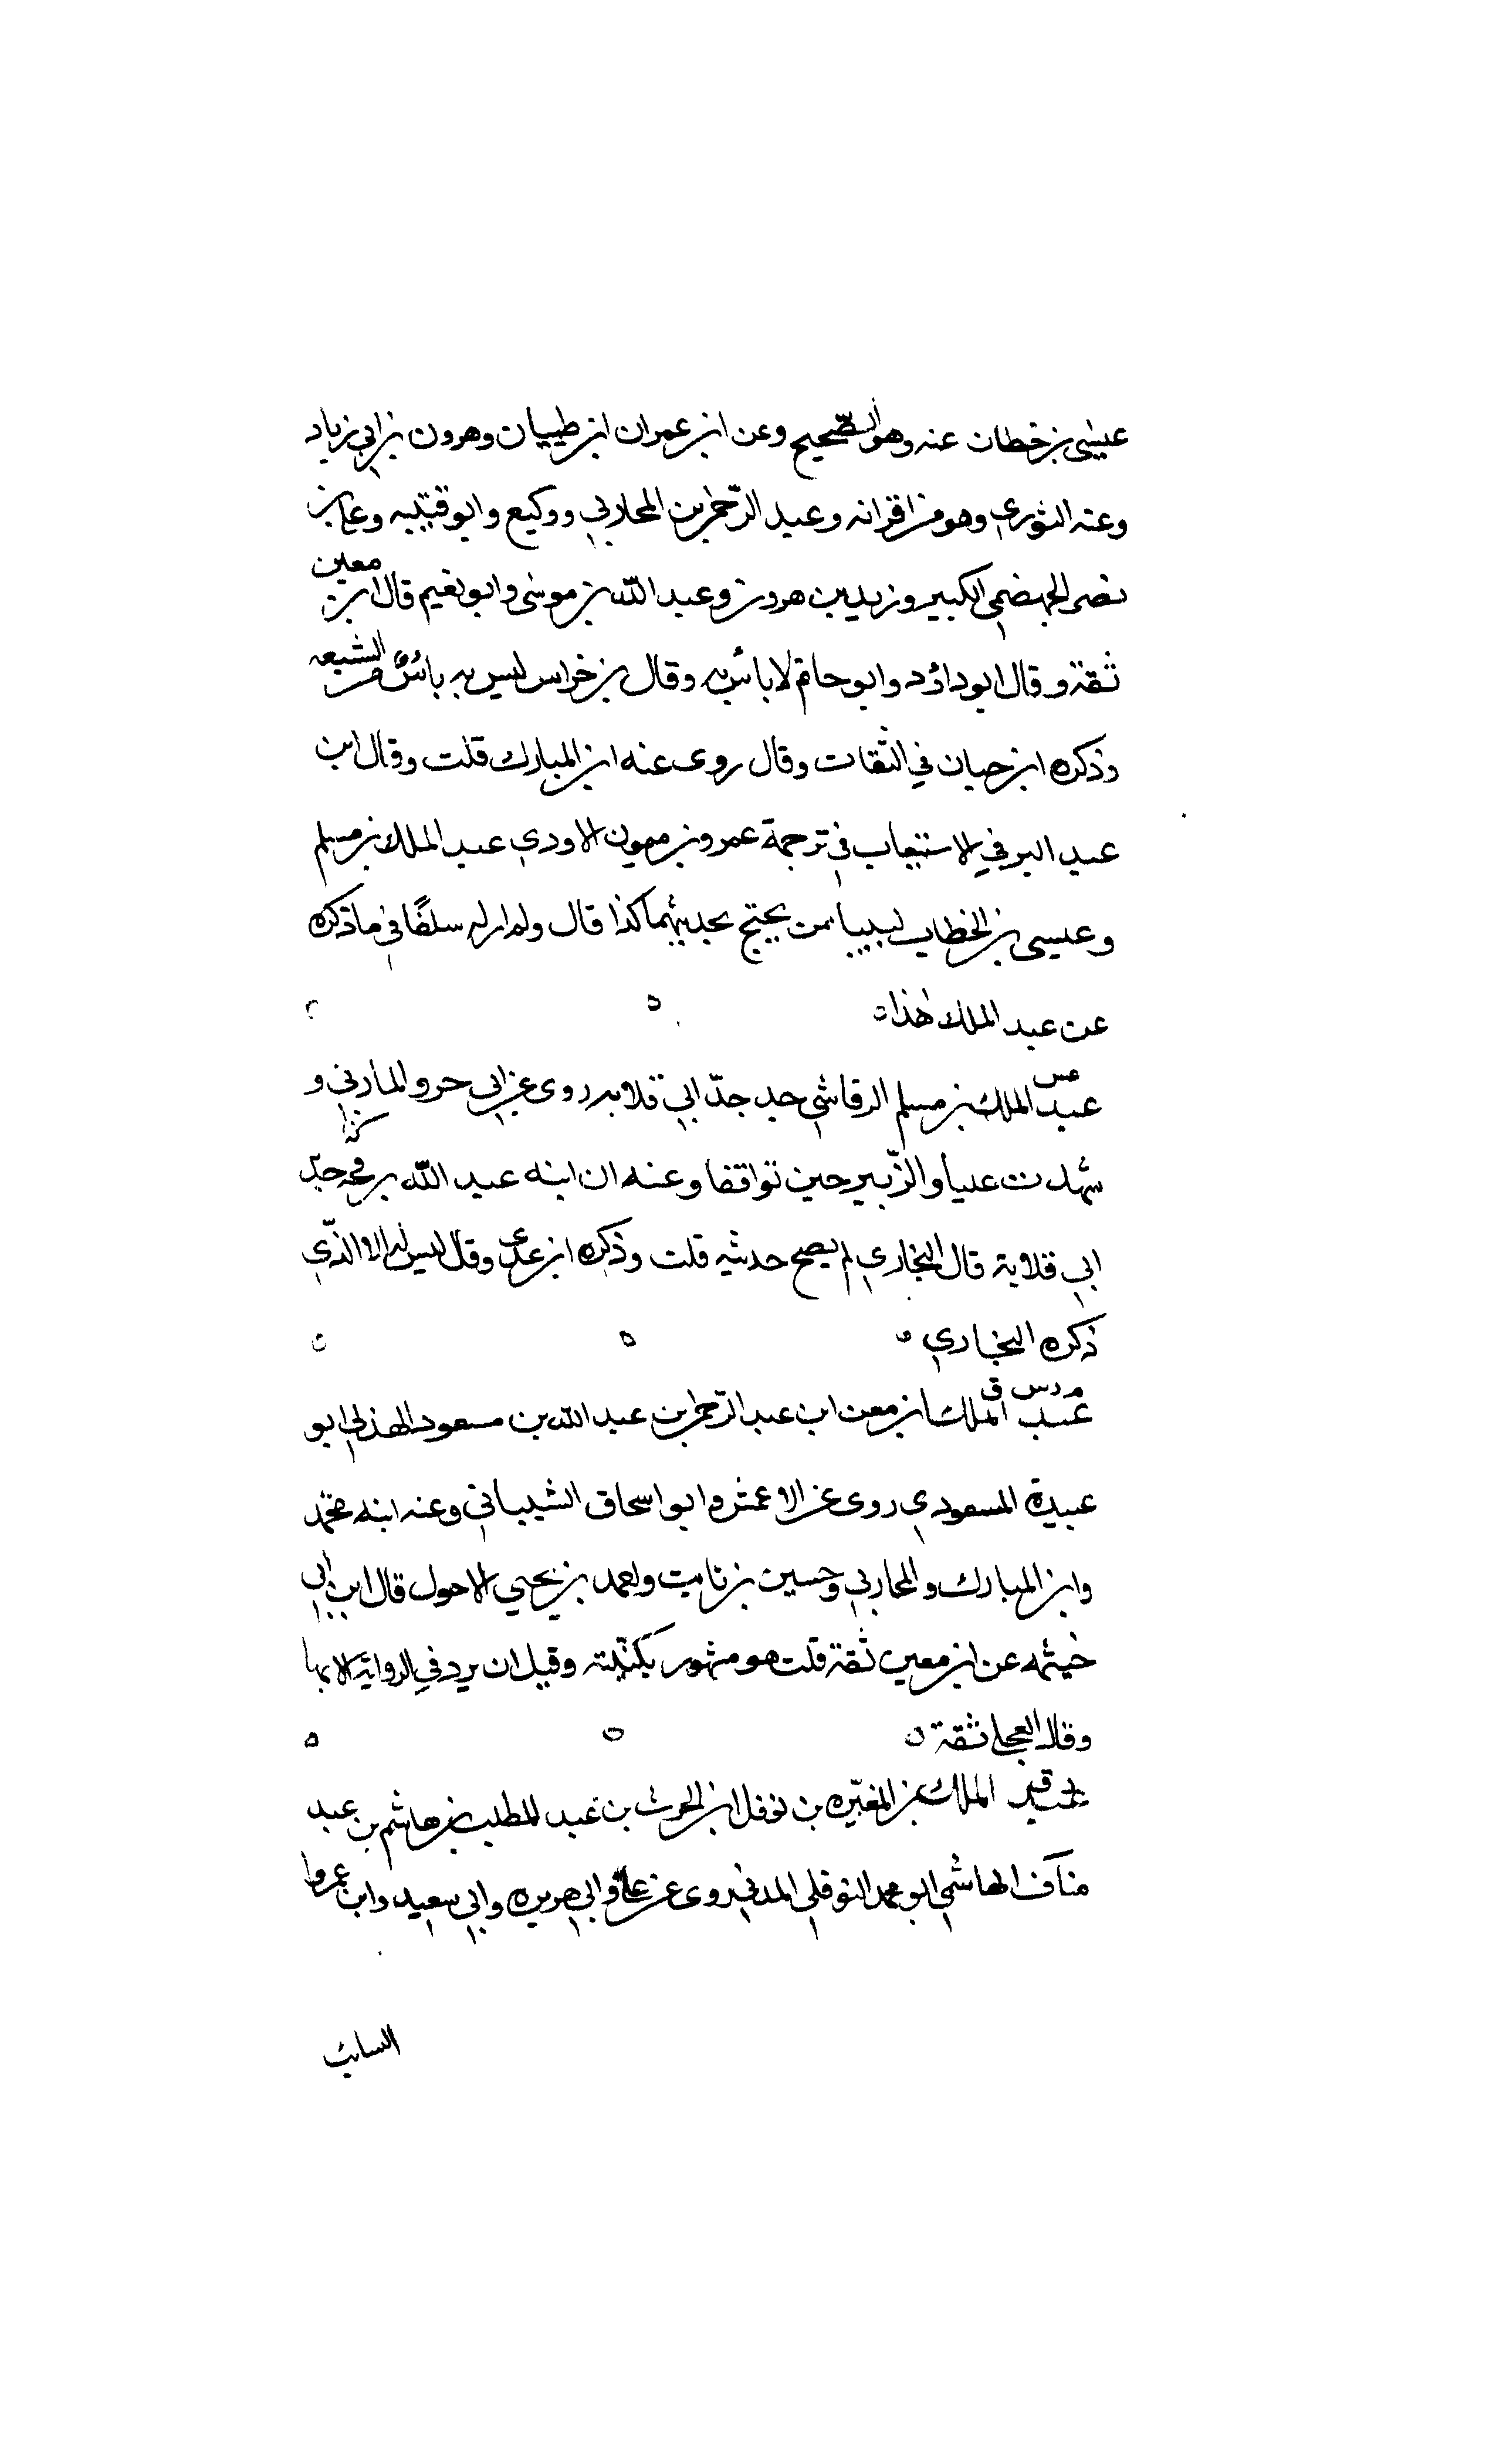 عيسى بن خطان عنه وهو الصّحيح وعن ابن عمران ابن طبيان وهرون بن ابي زياد
وعنه الثوري وهو من اقرانه وعبد الرّحمن بن المحاربي ووكيع وابو قتيبه وعلي بن
نصر الجهضمي الكبير وزيد بن هرون وعبد الله بن موسى وابو نعيم قال ابن معين
ثقة وقال ابو داؤد وابو حاتم لا باس به وقال بن خراس ليس به باس من الشيعه
وذكره ابن حبان في الثقات وقال روى عنه ابن المبارك قلت وقال ابن
عبد البر في الاستيعاب في ترجمة عمرو بن ميمون الاودي عبد الملك بن مسلم
وعيسى بن الخطاب ليسا ممن يحتج بحديثهما كذا قال ولم ار له سلفًا في ما ذكره
عن عبد الملك هذا
عس
عبد الملك بن مسلم الرقاشي جد جدّ ابي قلابه روى عن ابي حرو المازني و
شهدت عليا والزّبير حين تواقفا وعنه ان ابنه عبد الله بن محمد جد
ابي قلابة قال البخاري لم يصح حديثه قلت وذكره ابن عدي وقال ليس له الا الذّي
ذكره البخاري
م د س ق
عبد الملك ابن معن ابن عبد الرّحمن بن عبد الله بن مسعود الهذلي ابو
عبيدة المسعودي روى عن الاعمش وابو اسحاق الشيباني وعنه ابنه محمّد
وابن المبارك والمحاربي وحسين بن ثابت واحمد بن يحيي الاحول قال ابن ابي
خيثمه عن ابن معين ثقة قلت هو مشهور بكنيته وقيل ان يرد في الرواية الا بها
وقال العجلي ثقة
عبد الملك بن المغيّره بن نوفل ابن الحرث بن عبد المطلب بن هاشم بن عبد
مناف الهاشمي ابو محمد النوفلي المدني روى عن علي وابي هريره وابي سعيد وابن عمروا
السايب